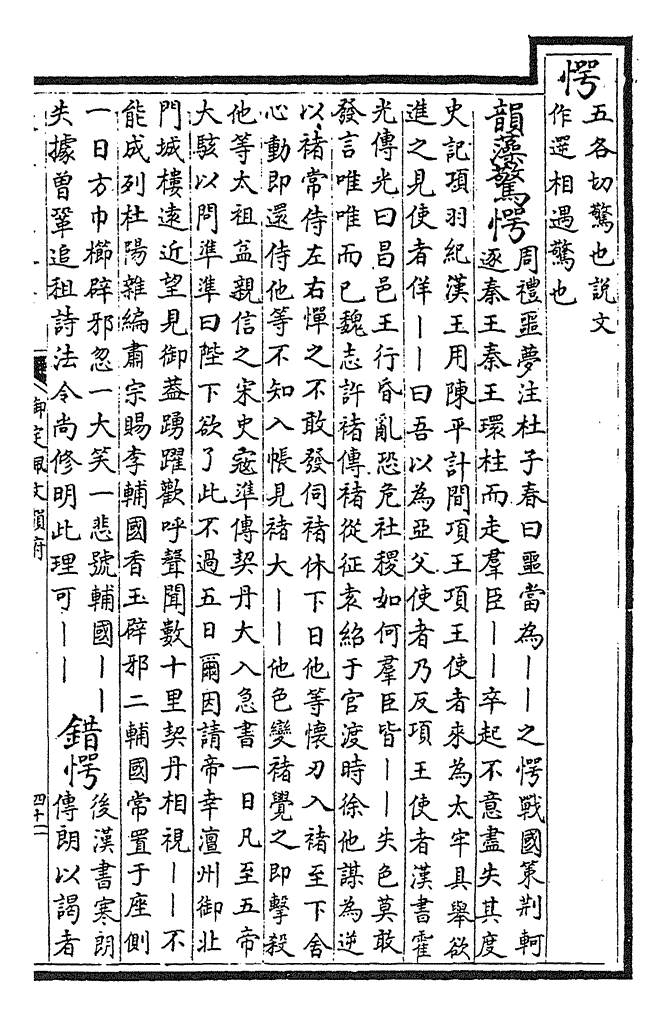 愕
五各切驚也説文
作遻相遇驚也
韻藻驚愕
周禮噩夢注杜子春曰噩當為丨丨之愕戰國策荆軻
逐秦王秦王環柱而走羣臣丨丨卒起不意盡失其度
史記項羽紀漢王用陳平計間項王項王使者來為太牢具舉欲
進之見使者佯丨丨曰吾以為亞父使者乃反項王使者漢書霍
光傳光曰昌邑王行昏亂恐危社稷如何羣臣皆丨丨失色莫敢
發言唯唯而已魏志許褚傳褚從征袁紹于官渡時徐他謀為逆
以褚常侍左右憚之不敢發伺褚休下日他等懷刃入褚至下舍
心動即還侍他等不知入帳見褚大丨丨他色變褚覺之即擊殺
他等太祖益親信之宋史寇準傳契丹大入急書一日凡至五帝
大駭以問準準曰陛下欲了此不過五日爾因請帝幸澶州御北
門城樓遠近望見御蓋踴躍歡呼聲聞數十里契丹相視丨丨不
能成列杜陽雜編肅宗賜李輔國香玉辟邪二輔國常置于座側
一日方巾櫛辟邪忽一大笑一悲號輔國丨丨
失據曾鞏追祖詩法令尚修明此理可丨丨
錯愕
後漢書寒朗
傳朗以謁者
御定佩文韻府
四十二